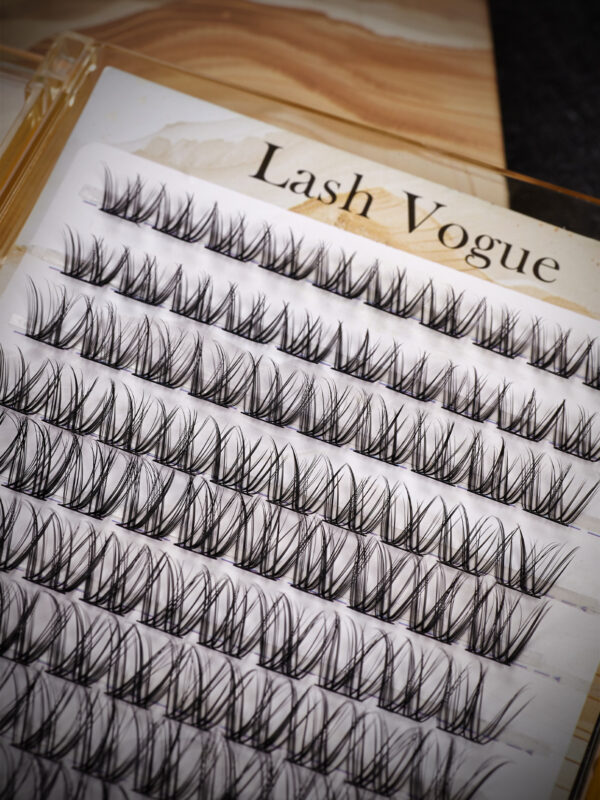 Lash Vogue